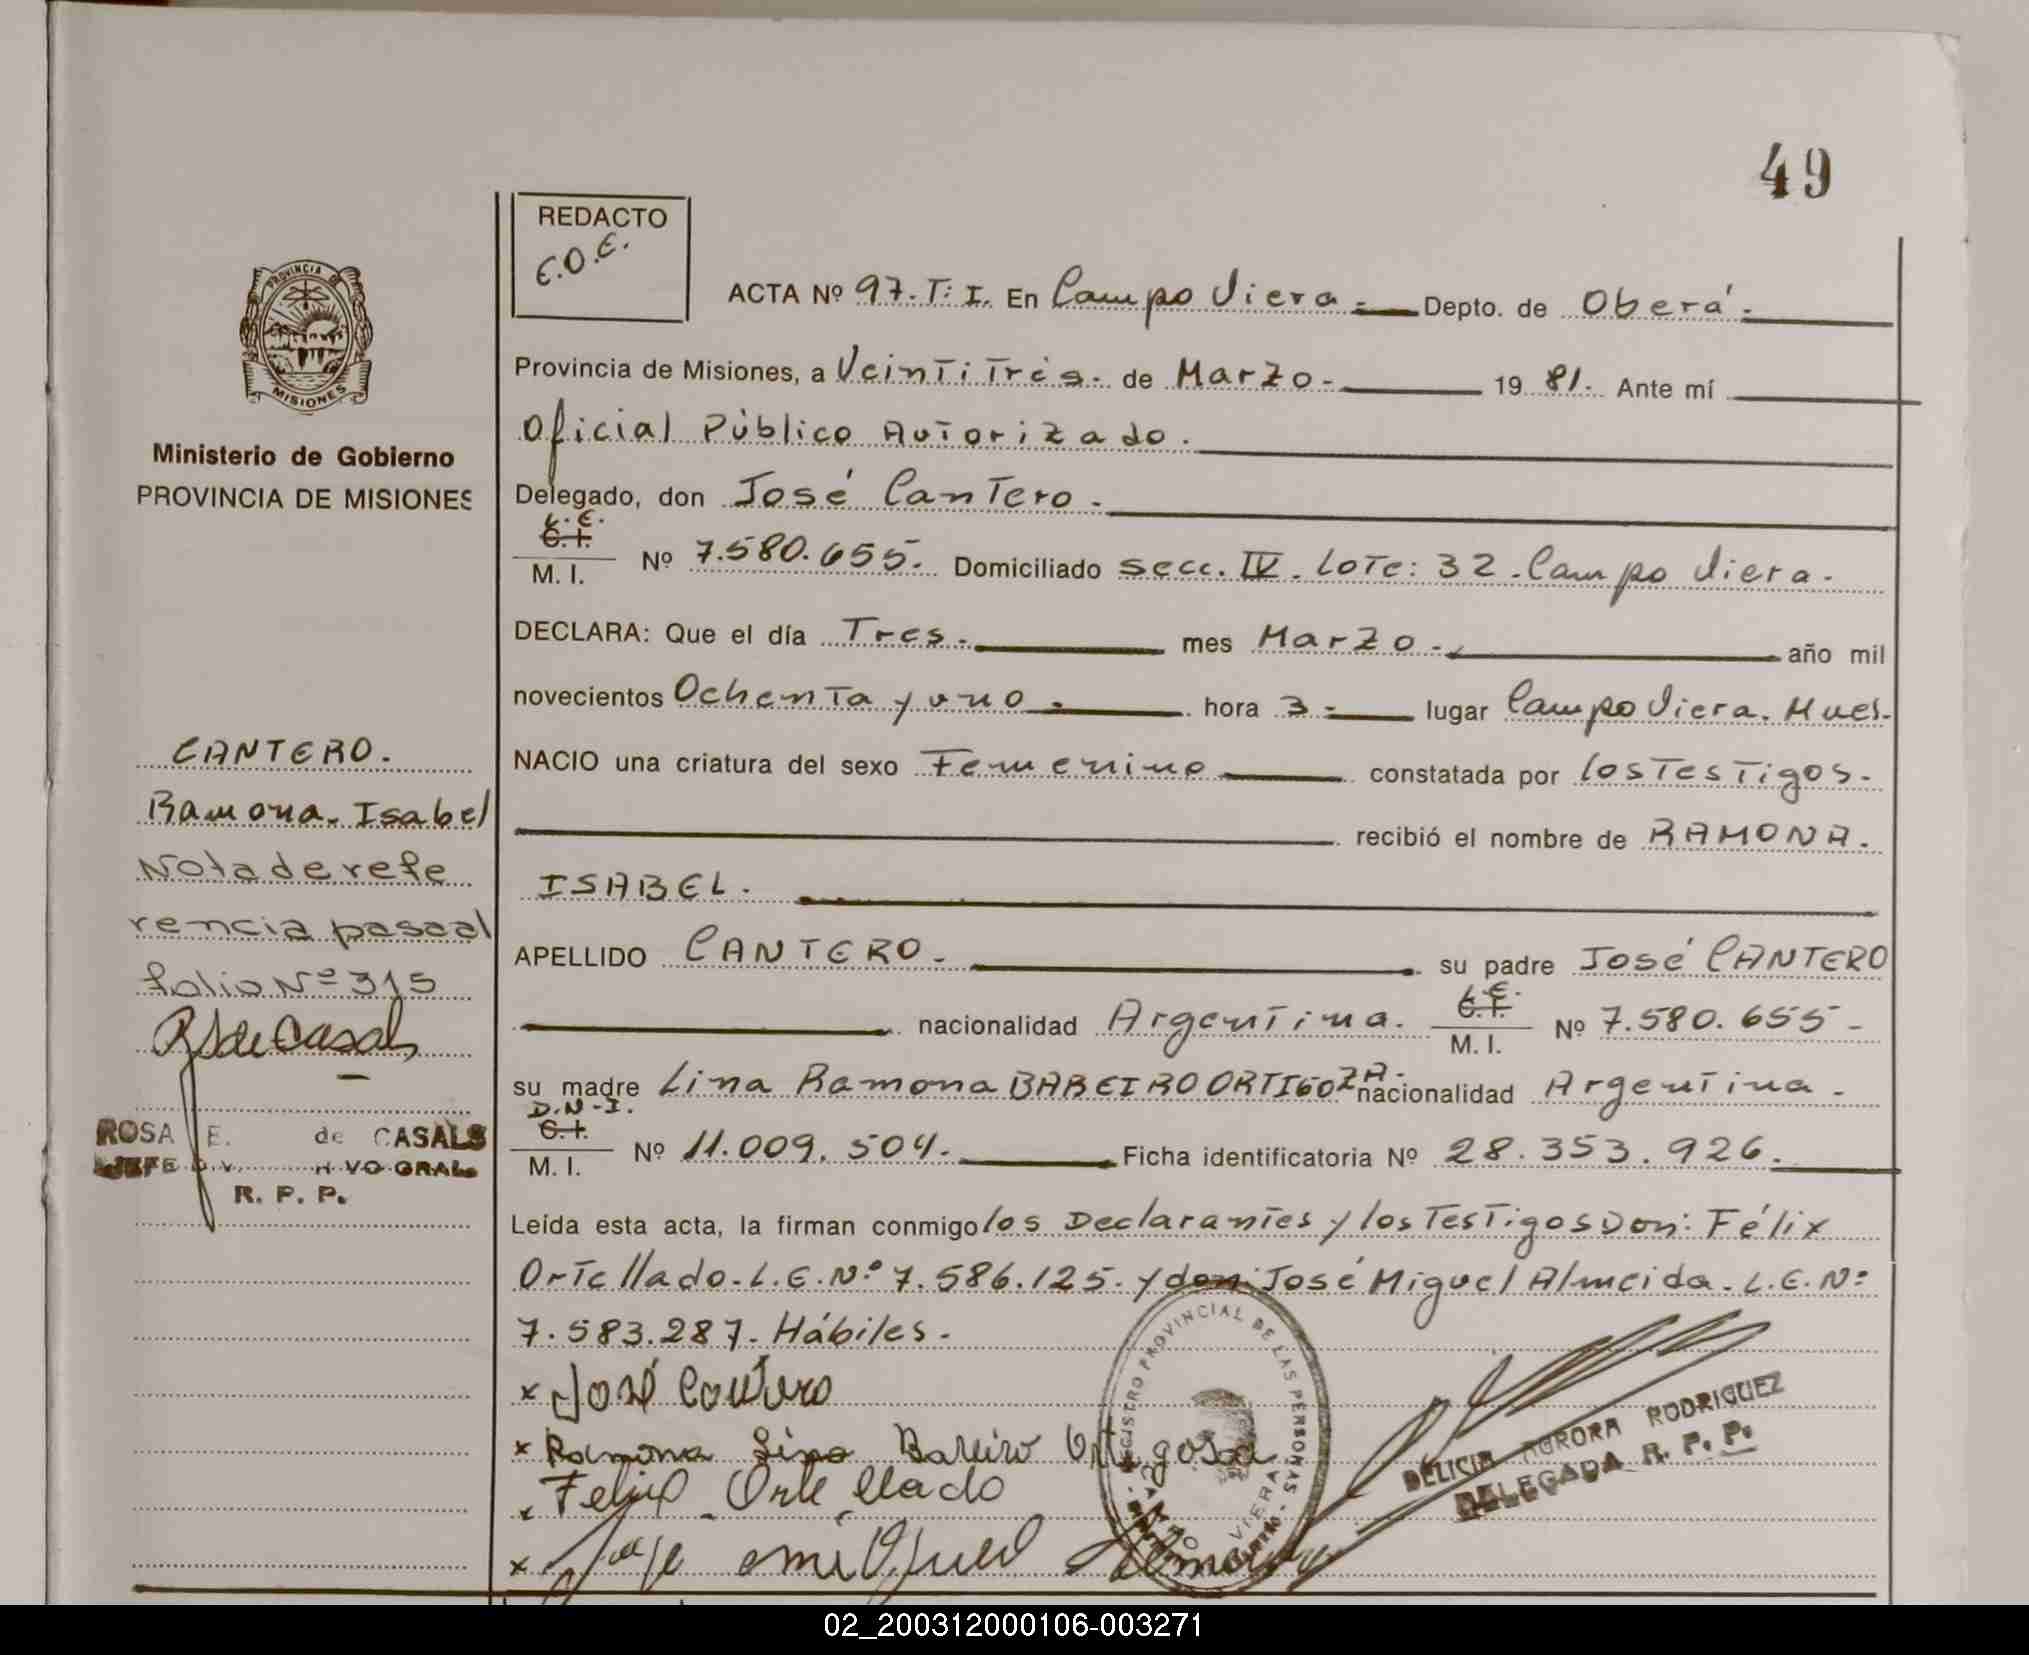 49
REDACTO
E.O.E.
ACTA Nº 97. T: I. En Campo Viera.- Depto. de Oberá.-
Provincia de Misiones, a Veintitrés.- de Marzo.- 1981.- Ante mí
Oficial Público Autorizado.
Delegado, don José Cantero.-
L.E.
C.I.
M. I. Nº 7.580.655.- Domiciliado secc. IV. Lote: 32. Campo Viera.-
DECLARA: Que el día Tres.- mes Marzo.- año mil
novecientos Ochenta y uno.- hora 3.- lugar Campo Viera. Mnes.-
NACIO una criatura del sexo Femenino constatada por los Testigos.-
recibió el nombre de RAMONA.
ISABEL.
APELLIDO CANTERO.- su padre José CANTERO
nacionalidad Argentina. L.E. C.I. M. I. Nº 7.580.655.-
su madre Lina Ramona BAREIRO ORTIGOZA.- nacionalidad Argentina.-
D.N.I.
C.I.
M. I. Nº 11.009.504.- Ficha identificatoria Nº 28.353.926.
Leída esta acta, la firman conmigo los Declarantes y los Testigos Don: Félix
Ortellado. L.E. Nº 7.586.125. y don: José Miguel Almeida. L.E. Nº
7.583.287. Hábiles.-
x José Cantero
x Ramona Lina Barreiro Ortigosa
x Felix Ortellado
x Jose Miguel Almeida
REGISTRO PROVINCIAL DE LAS PERSONAS
VIERA
DELICIA AURORA RODRIGUEZ
DELEGADA R. P. P.
PROVINCIA DE
MISIONES
Ministerio de Gobierno
PROVINCIA DE MISIONES
CANTERO.
Ramona. Isabel
Nota de refe
rencia pasa al
folio Nº 315
RSdeCasals
ROSA E. de CASALS
JEFE DIV. GRAL.
R. P. P.
02_200312000106-003271